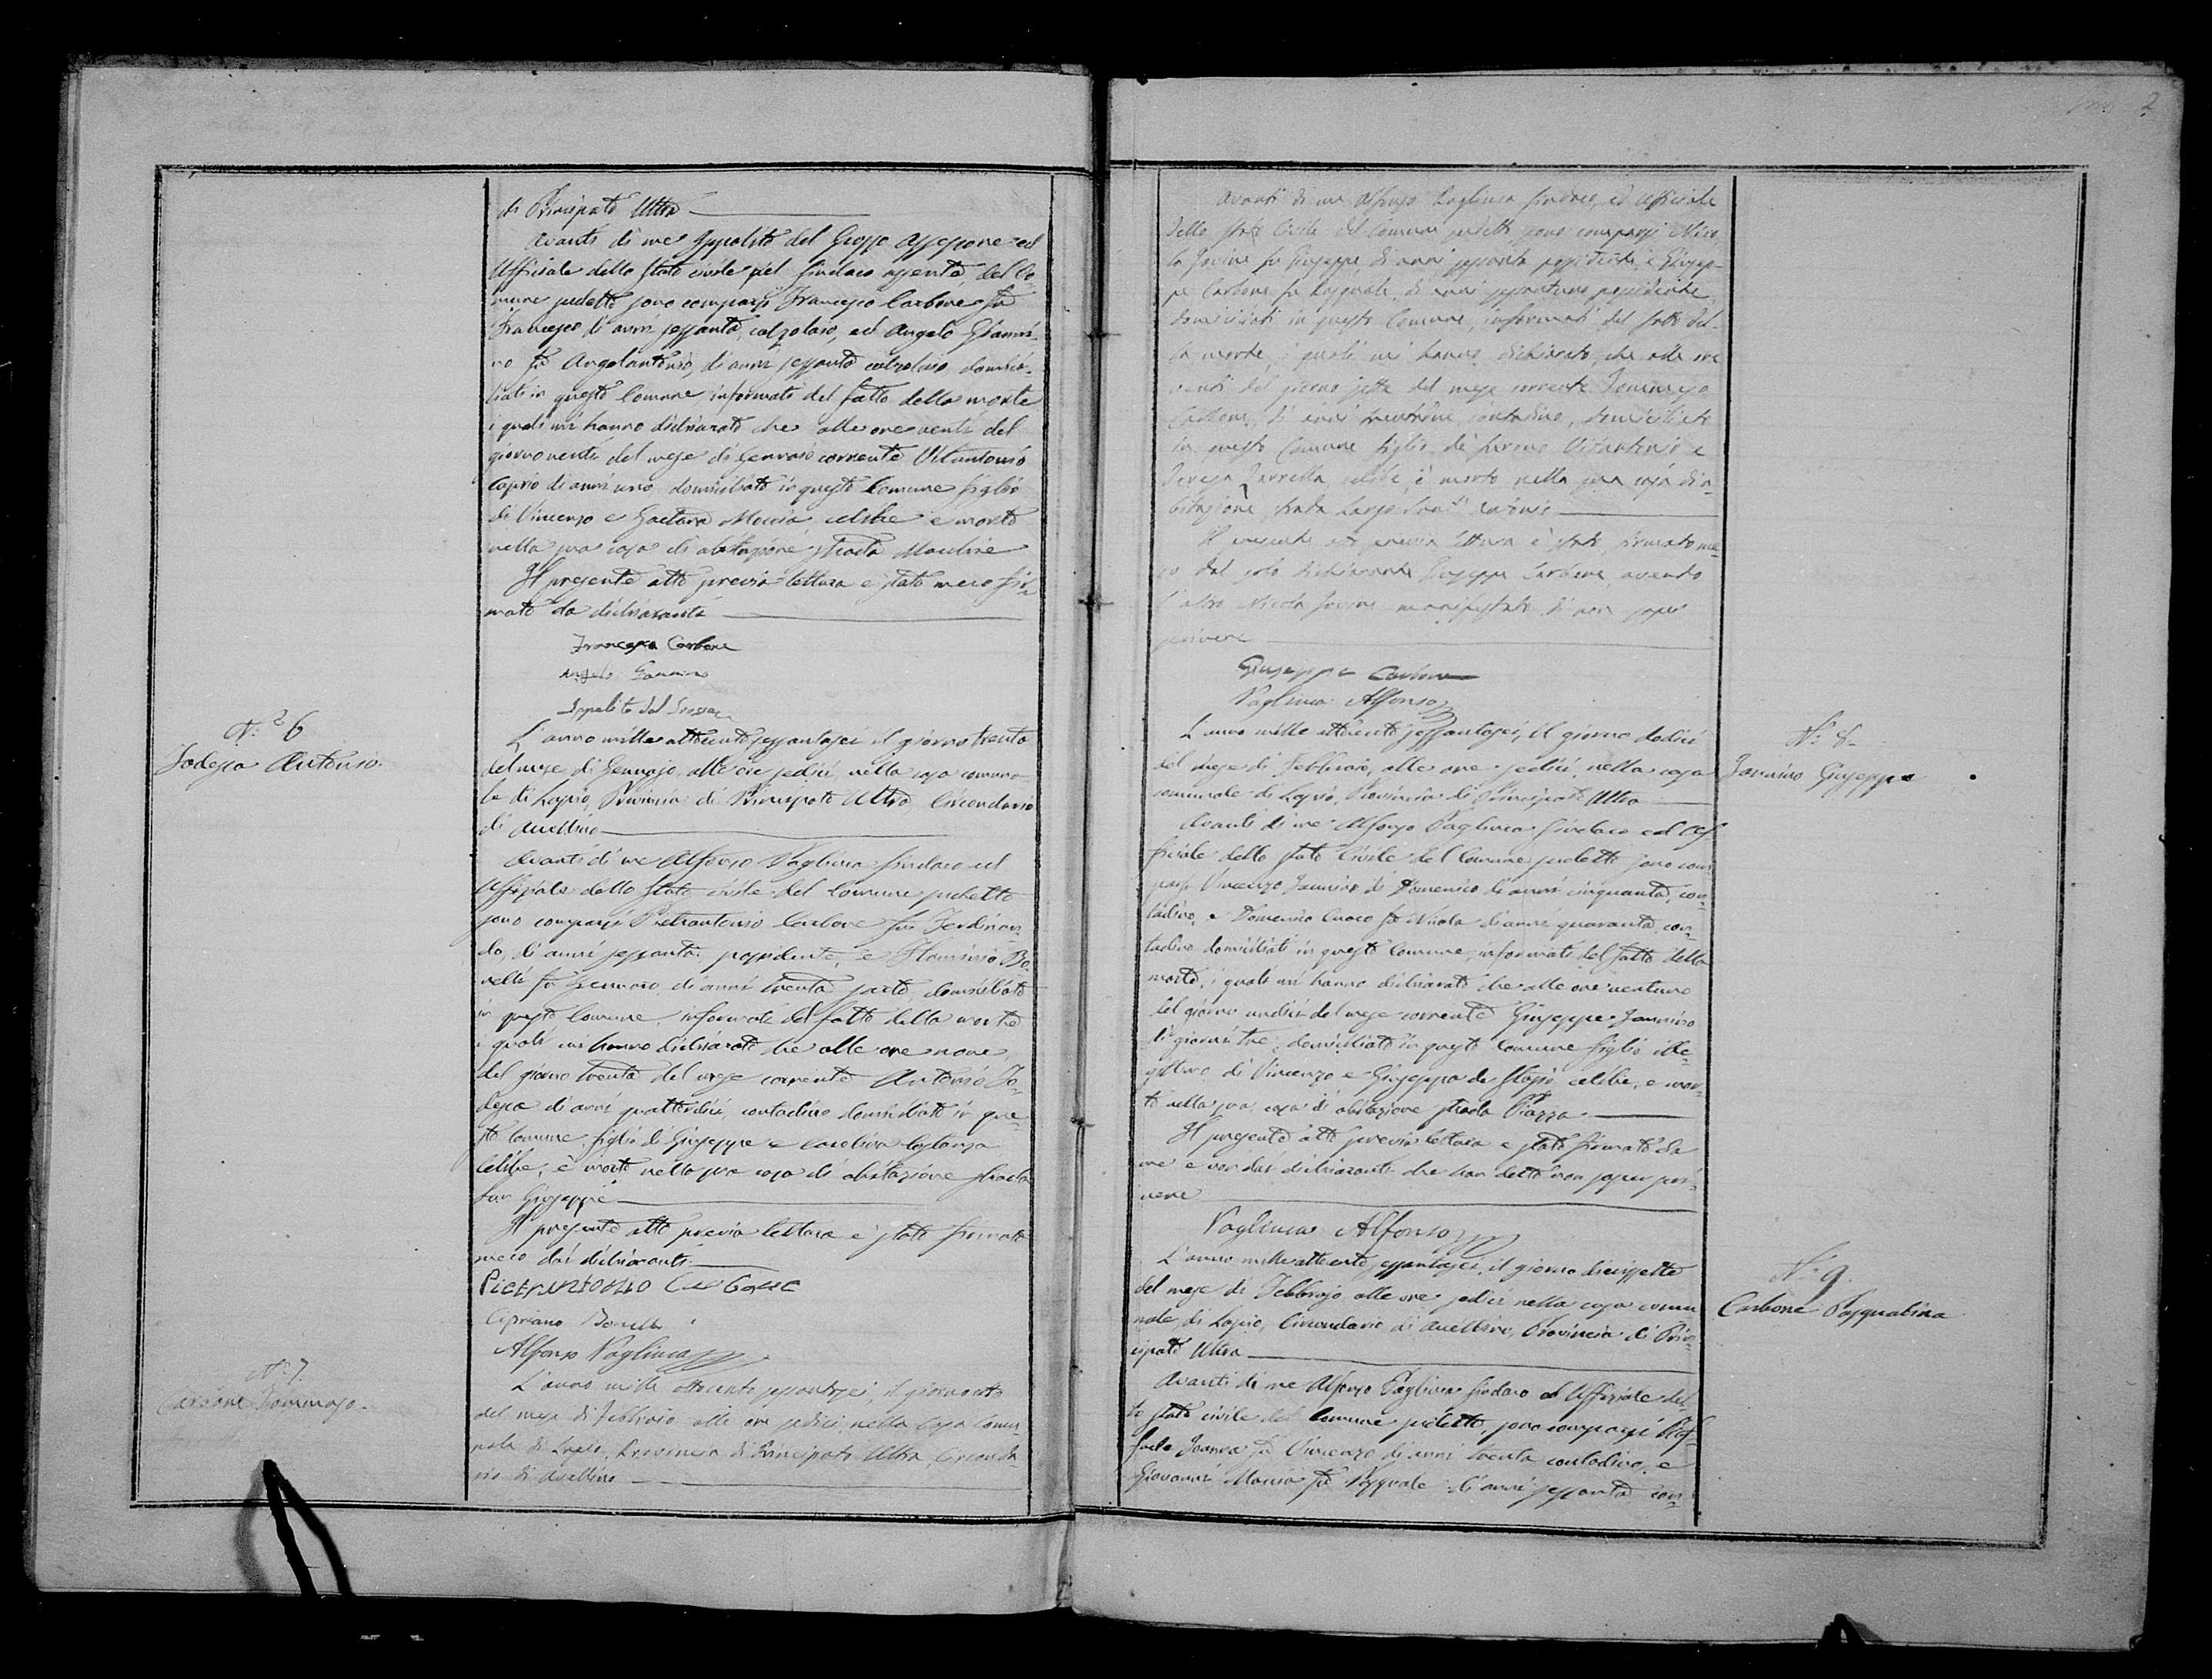 di Principato Ultra
Avanti di me Ippolito del Grosso Assessore ed
Uffiziale dello Stato civile pel Sindaco assente, del Co-
mune sudetto sono comparsi Francesco Carbone fu
Francesco di anni sessanta, calzolaio, ed Angelo Gianni-
no fu Angelantonio, di anni sessanta calzolaio, domici-
liati in questo Comune informati del fatto della morte
i quali mi hanno dichiarato che alle ore venti del
giorno venti del mese di Gennaio corrente Vitantonio
Caprio di anni uno, domiciliato in questo Comune figlio
di Vincenzo e Gaetana Moccia celibe è morto
nella sua casa di abitazione strada
Il presente atto previa lettura è stato meco fir-
mato da dichiaranti
Francesco Carbone
Angelo Giannino
Ippolito del Grosso
N.º 6
Jodesa Antonio.
L'anno mille ottocento sessantasei il giorno trenta
del mese di Gennajo, alle ore sedici, nella casa comuna-
le di Lapio, Provincia di Principato Ultra, Circondario
di Avellino
Avanti di me Alfonso Vagliuca Sindaco ed
Uffiziale dello Stato civile del Comune sudetto
sono comparsi Pietrantonio Carbone fu Ferdinan-
do, di anni sessanta, possidente, e Bo-
nelli fu Gennaro, di anni trenta sarto, domiciliati
in questo Comune, informati del fatto della morte
i quali mi hanno dichiarato che alle ore nove
del giorno trenta del mese corrente Antonio Jo-
desa di anni quattordici, contadino domiciliato in que-
sto Comune, figlio di Giuseppe e Carolina Costanza
celibe, è morto nella sua casa di abitazione strada
San Giuseppe
Il presente atto previa lettura è stato firmato
meco dai dichiaranti
Pietrantonio Carbone
Cipriano Bonelli
Alfonso Vagliuca
N.º 7.
Carbone Tommaso.
L'anno mille ottocento sessantasei, il giorno otto
del mese di Febbraio alle ore sedici, nella Casa Comu-
nale di Lapio, Provincia di Principato Ultra, Circonda-
rio di Avellino
2
Avanti di me Alfonso Vagliuca Sindaco, ed Uffiziale
dello Stato Civile del Comune sudetto sono comparsi Nico-
la Jovine fu Giuseppe di anni sessanta possidente, e Giusep-
pe Carbone fu Pasquale, di anni possidente,
domiciliati in questo Comune, informati del fatto del-
la morte, i quali mi hanno dichiarato, che alle ore
venti del giorno sette del mese corrente Tommaso
Carbone, di anni contadino, domiciliato
in questo Comune figlio di Vitantonio e
Teresa Zarrella, celibe, è morto nella sua casa di a-
bitazione strada Largo Antonio
Il presente atto previa lettura è stato firmato me-
co dal solo dichiarante Giuseppe Carbone, avendo
l'altro Nicola Jovine manifestato di non saper
scrivere
Giuseppe Carbone
Vagliuca Alfonso
N.º 8.
Jannino Giuseppe
L'anno mille ottocento sessantasei, il giorno dodici
del mese di Febbraio, alle ore sedici, nella casa
comunale di Lapio, Provincia di Principato Ultra
Avanti di me Alfonso Vagliuca Sindaco ed Uf-
fiziale dello Stato Civile del Comune sudetto sono com-
parsi Vincenzo Jannino di Domenico di anni cinquanta, con-
tadino, e Domenico Cuoco fu Nicola di anni quaranta, con-
tadino domiciliati in questo Comune, informati del fatto della
morte, i quali mi hanno dichiarato che alle ore ventuno
del giorno undici del mese corrente Giuseppe Jannino
di giorni tre, domiciliato in questo Comune figlio ille-
gittimo di Vincenzo e Giuseppa de Stasio celibe, è mor-
to nella sua casa di abitazione strada Piazza
Il presente atto previa lettura è stato firmato da
me e non dai dichiaranti che han detto non saper scri-
vere
Vagliuca Alfonso
N.º 9.
Carbone Pasqualina
L'anno mille ottocento sessantasei, il giorno diciassette
del mese di Febbrajo alle ore sedici nella casa comu-
nale di Lapio, Circondario di Avellino, Provincia di Prin-
cipato Ultra
Avanti di me Alfonso Vagliuca Sindaco ed Uffiziale del-
lo Stato civile del Comune sudetto, sono comparsi Raf-
faele fu Vincenzo di anni trenta contadino, e
Giovanni Moccia fu Pasquale di anni sessanta con-